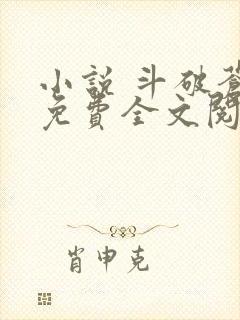 小說 斗破蒼
免費全文閱
肖申克